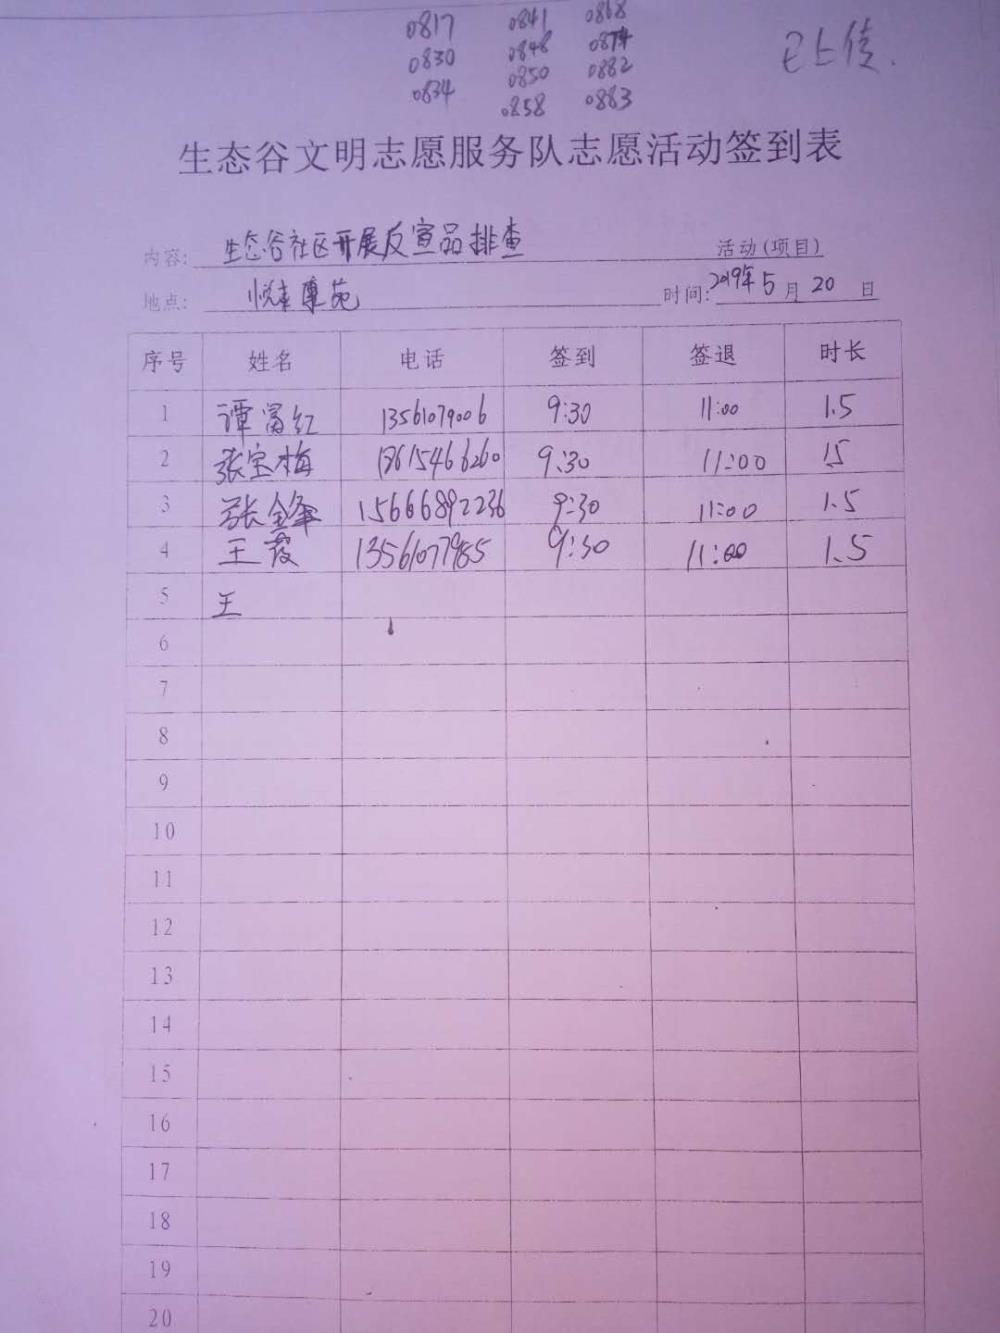 0817 0841 0868
0830 0848 0874
0834 0850 0882
0858 0883
已上传.
生态谷文明志愿服务队志愿活动签到表
内容: 生态谷社区开展反宣品排查 活动(项目)
地点: 苑 时间: 2019年5月20日
序号 姓名 电话 签到 签退 时长
1 谭富红 13561079006 9:30 11:00 1.5
2 张宝梅 18615466260 9:30 11:00 1.5
3 张金峰 15666892236 9:30 11:00 1.5
4 王霞 13561077985 9:30 11:00 1.5
5 王
6
7
8
9
10
11
12
13
14
15
16
17
18
19
20